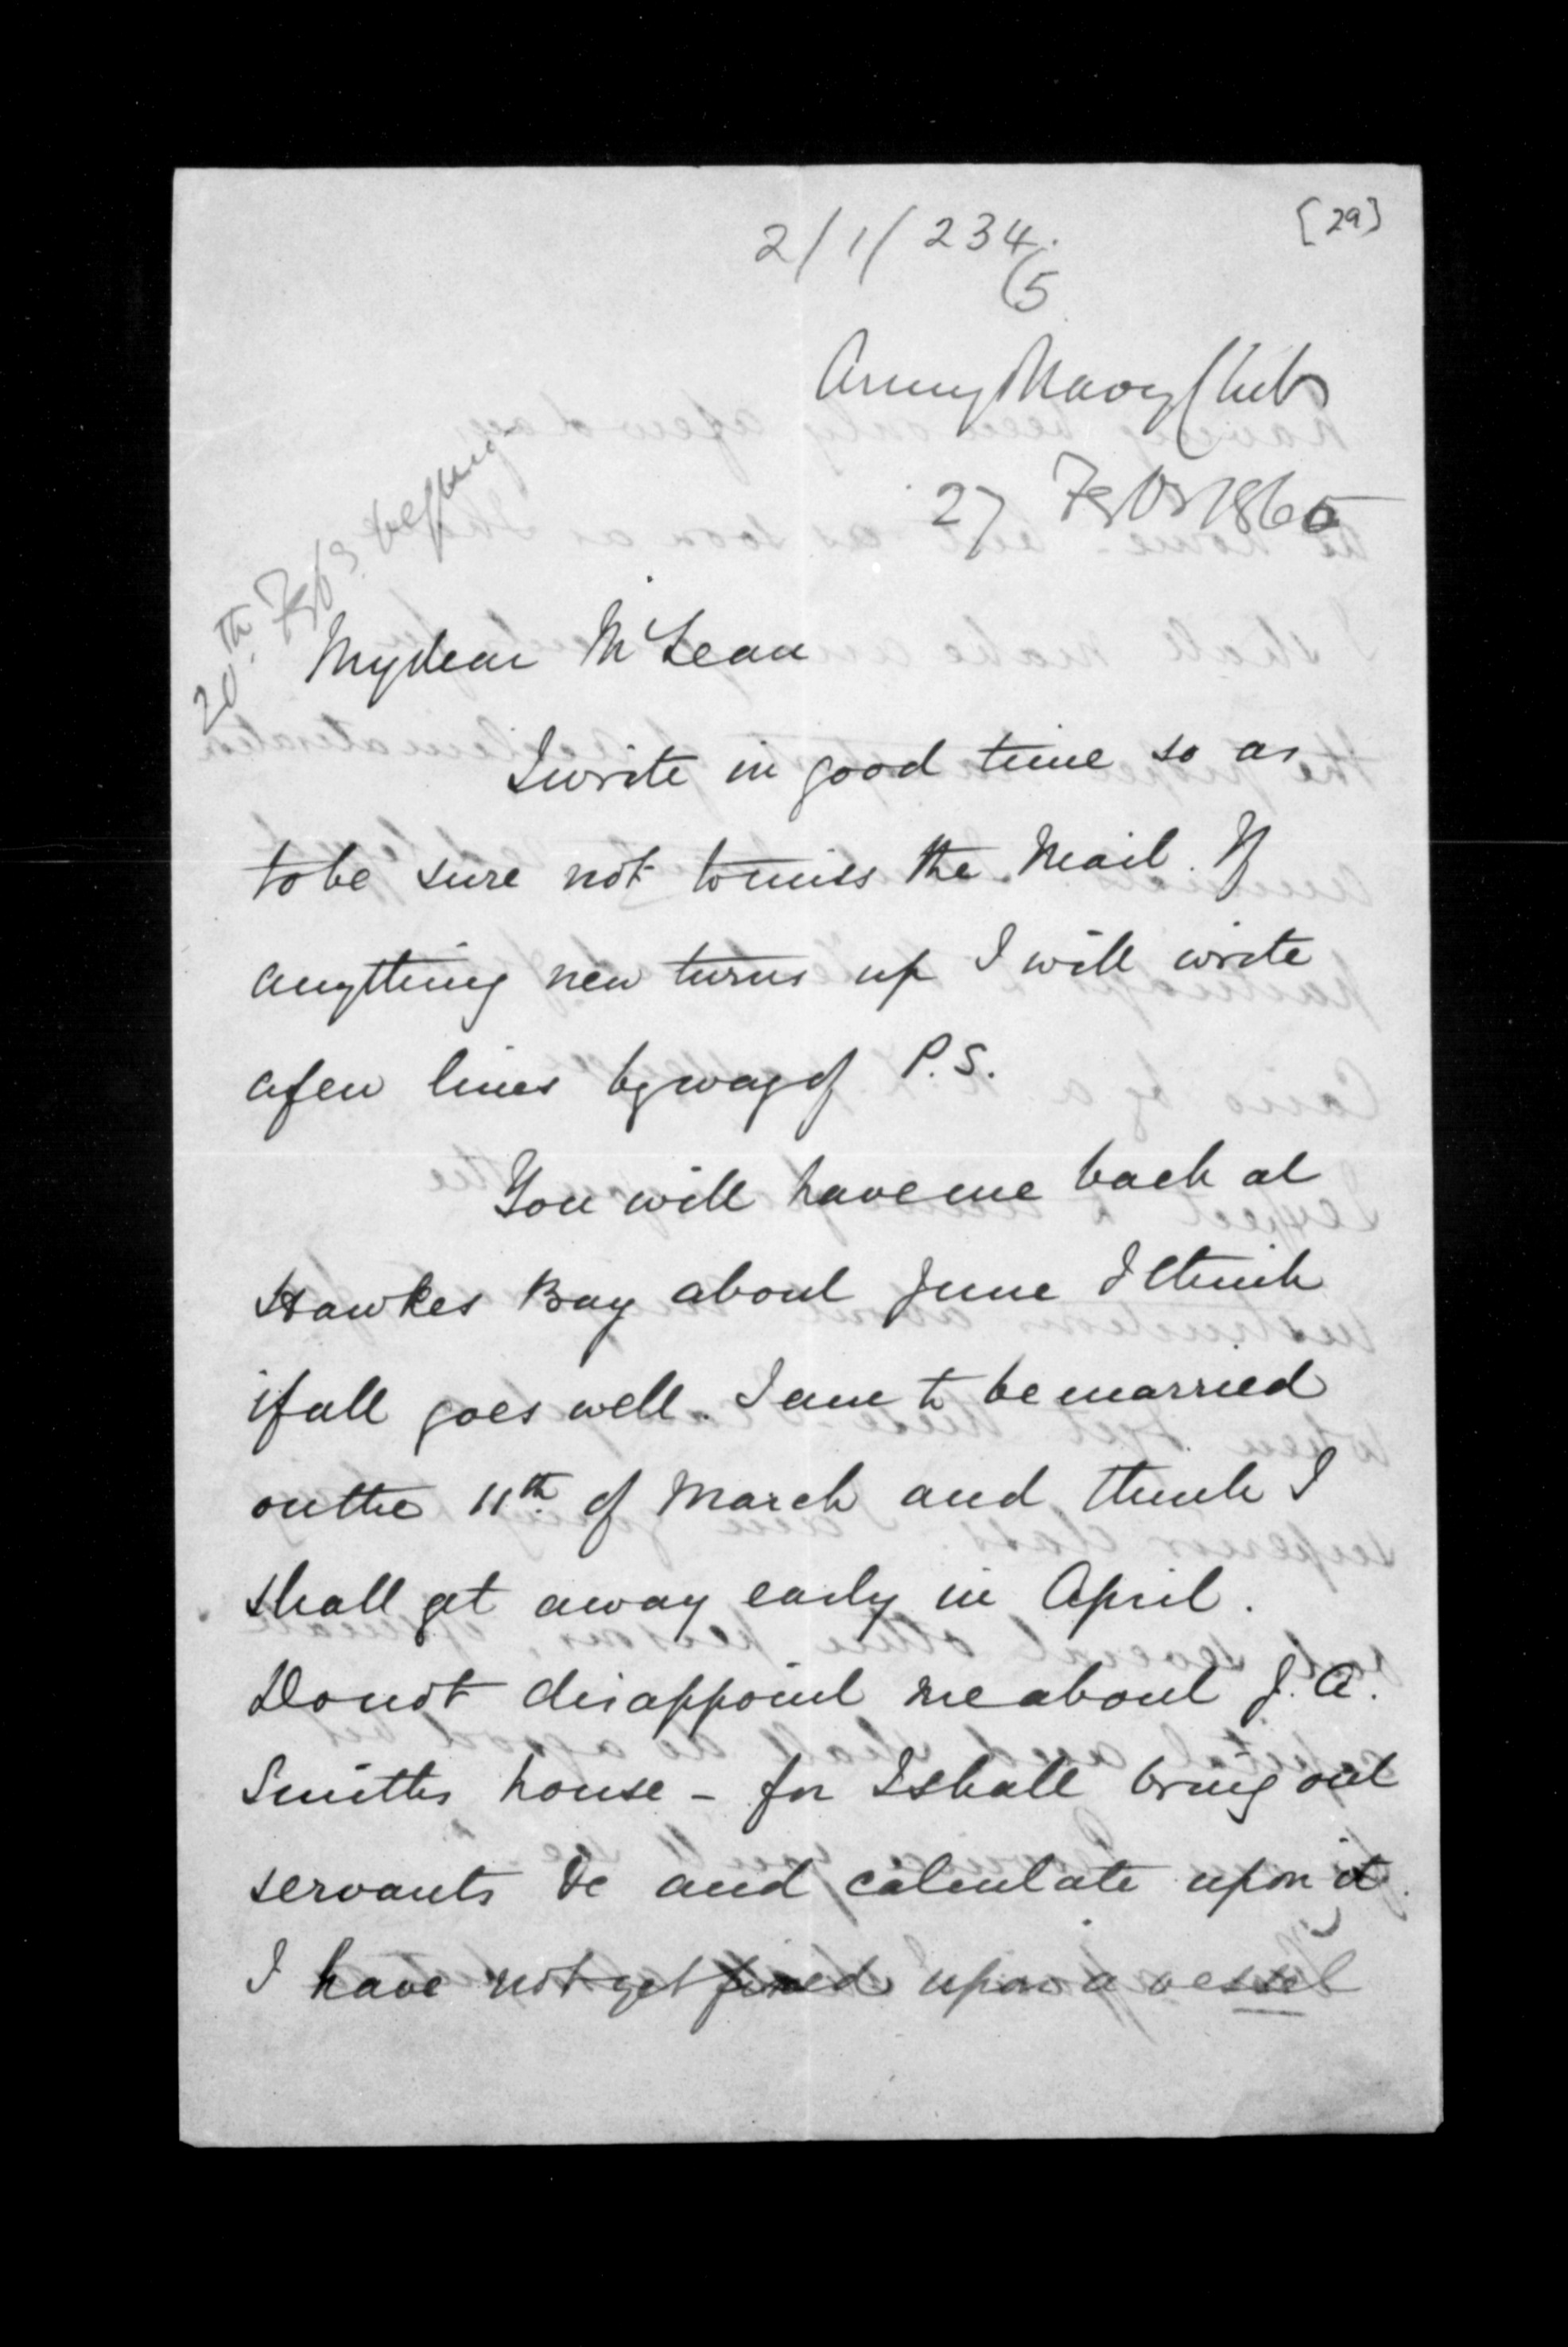 [29]
2/1/234.
5
Army Navy Club
27 Feb 1865
20th Feb
My dear McLean
I write in good time so as
to be sure not to miss the Mail. If
anything new turns up I will write
a few lines by way of P.S.
You will have me back at
Hawkes Bay about June I think
if all goes well. I am to be married
on the 11th of March and think I
shall get away early in April.
Do not disappoint me about J. A.
Smiths house - for I shall bring out
servants &c and calculate upon it.
I have not yet fixed upon a vessel